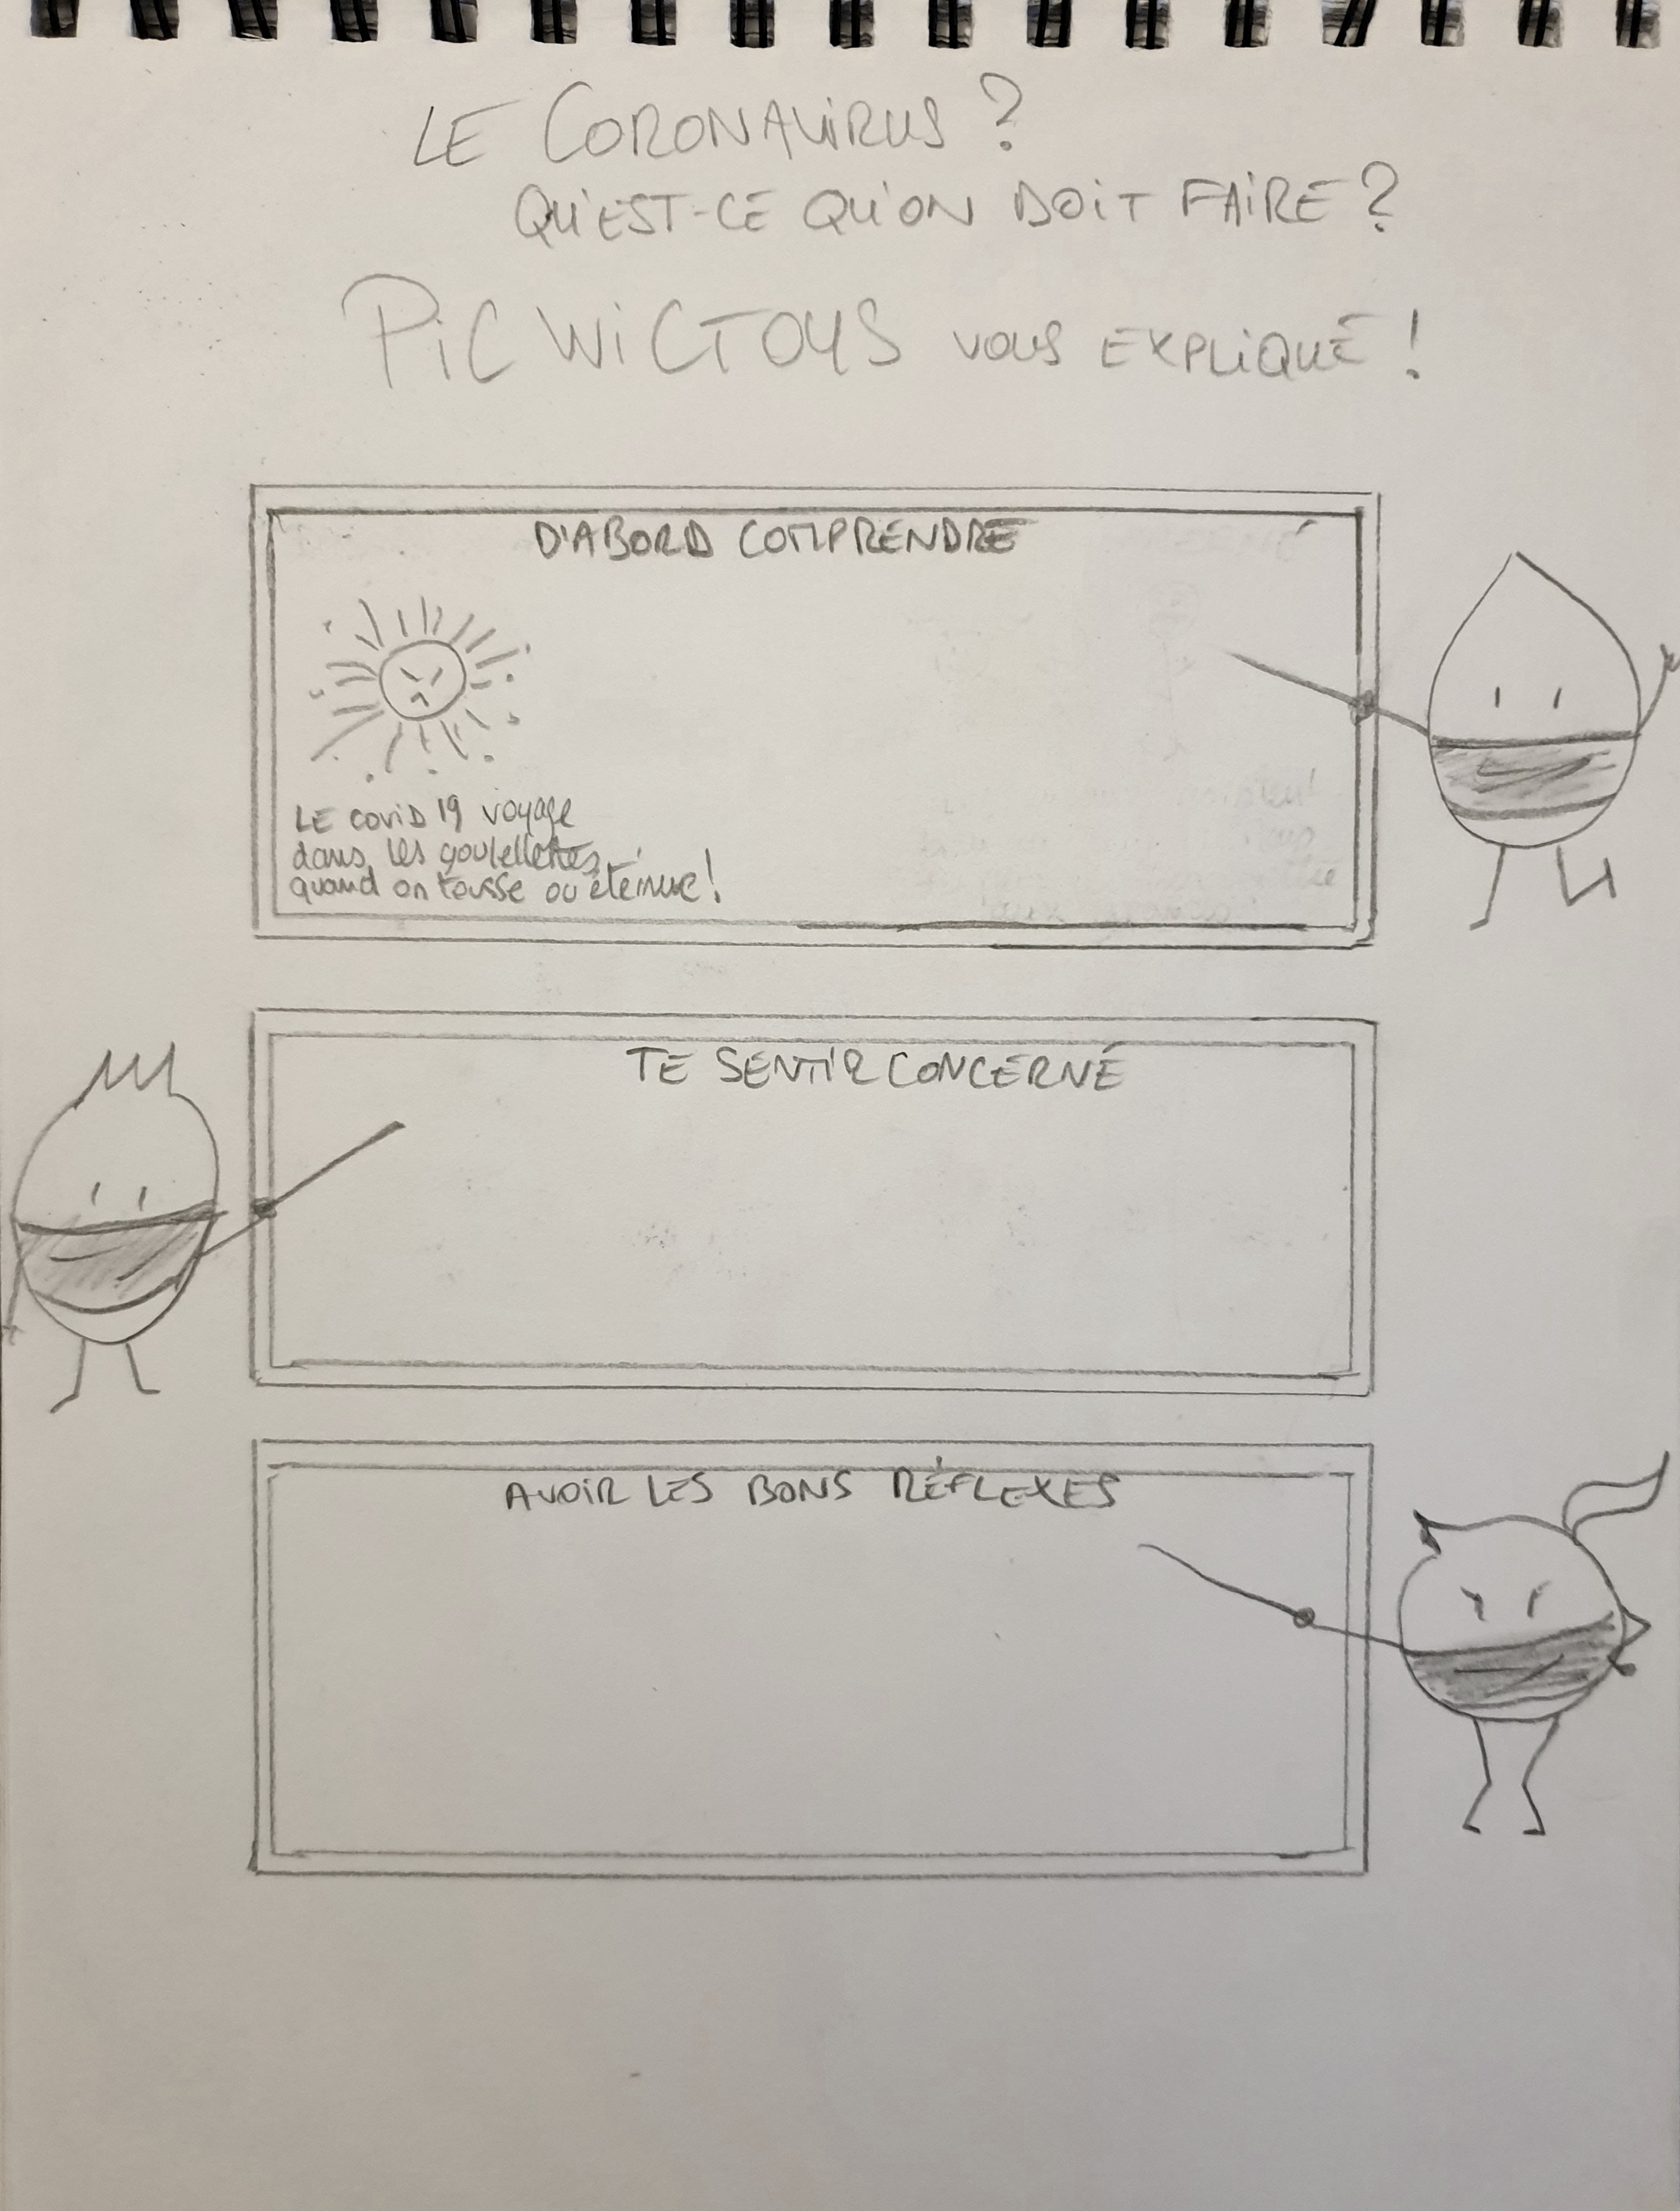 LE CORONAVIRUS ?
QU'EST-CE QU'ON DOIT FAIRE ?
PICWICTOYS VOUS EXPLIQUE !
D'ABORD COMPRENDRE
LE COVID 19 voyage
dans les goutellettes,
quand on tousse ou éternue !
TE SENTIR CONCERNÉ
AVOIR LES BONS RÉFLEXES